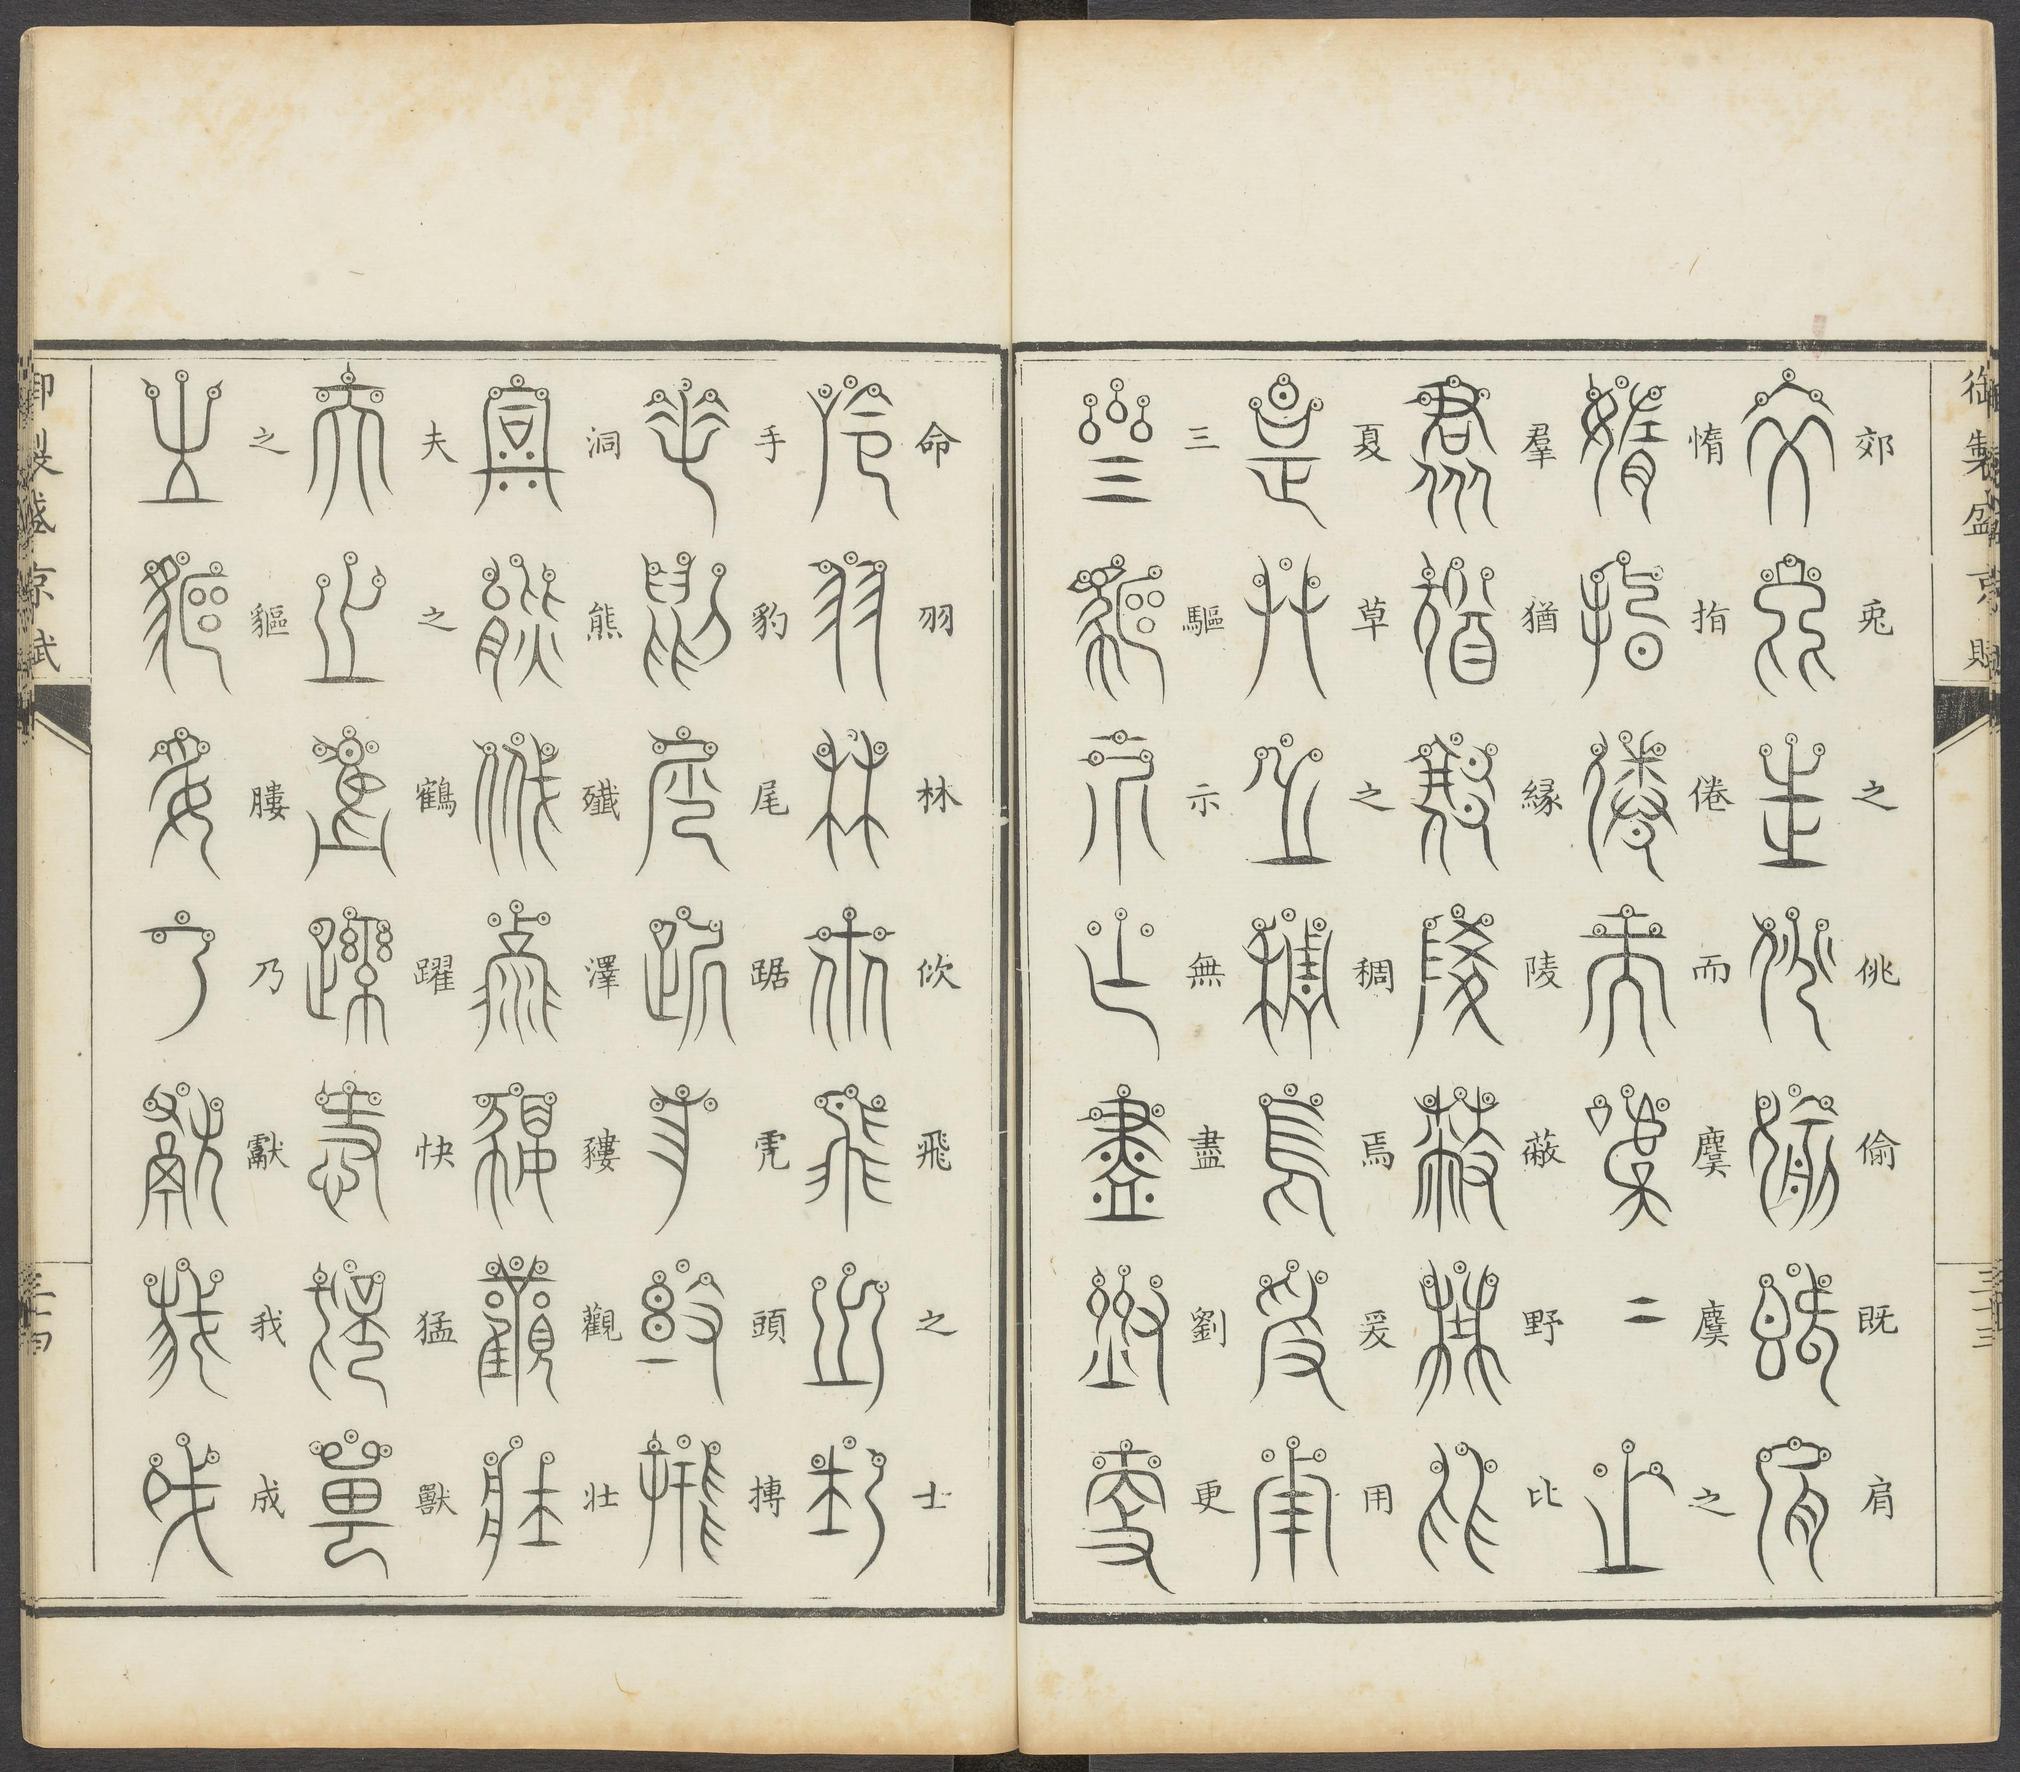 御製盛京賦
三十三
郊兎之佻偷既肩
惰指倦而麌麌之
羣猶緣陵蔽野比
夏草之稠焉爰用
三驅示無盡劉更
命羽林佽飛之士
手豹尾踞虎頭摶
洞熊殲澤貗觀壯
夫之鶴躍快猛獸
之貙膢乃獻我成
御製盛京賦
三十四